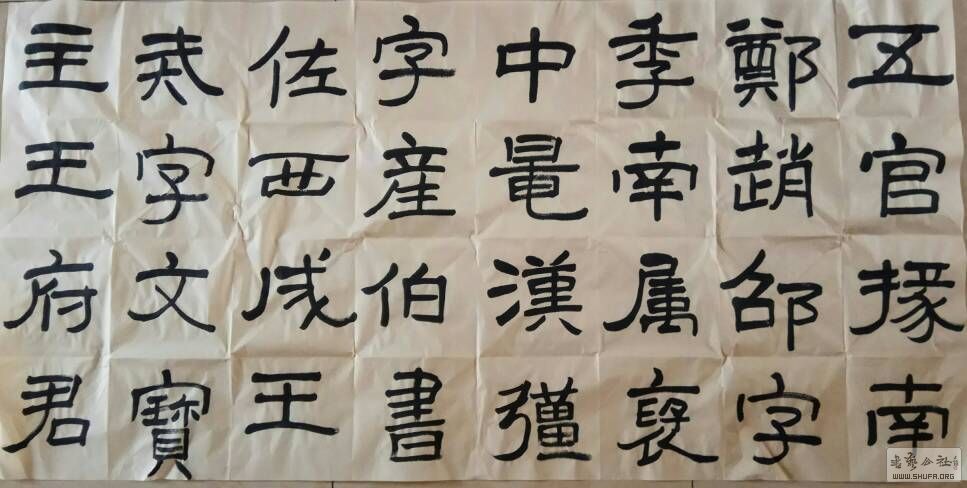 五官掾南
鄭趙邵字
季南属褒
中鼂漢彊
字産伯書
佐西成王
戒字文寶
主王府君
书艺公社
WWW.SHUFA.ORG